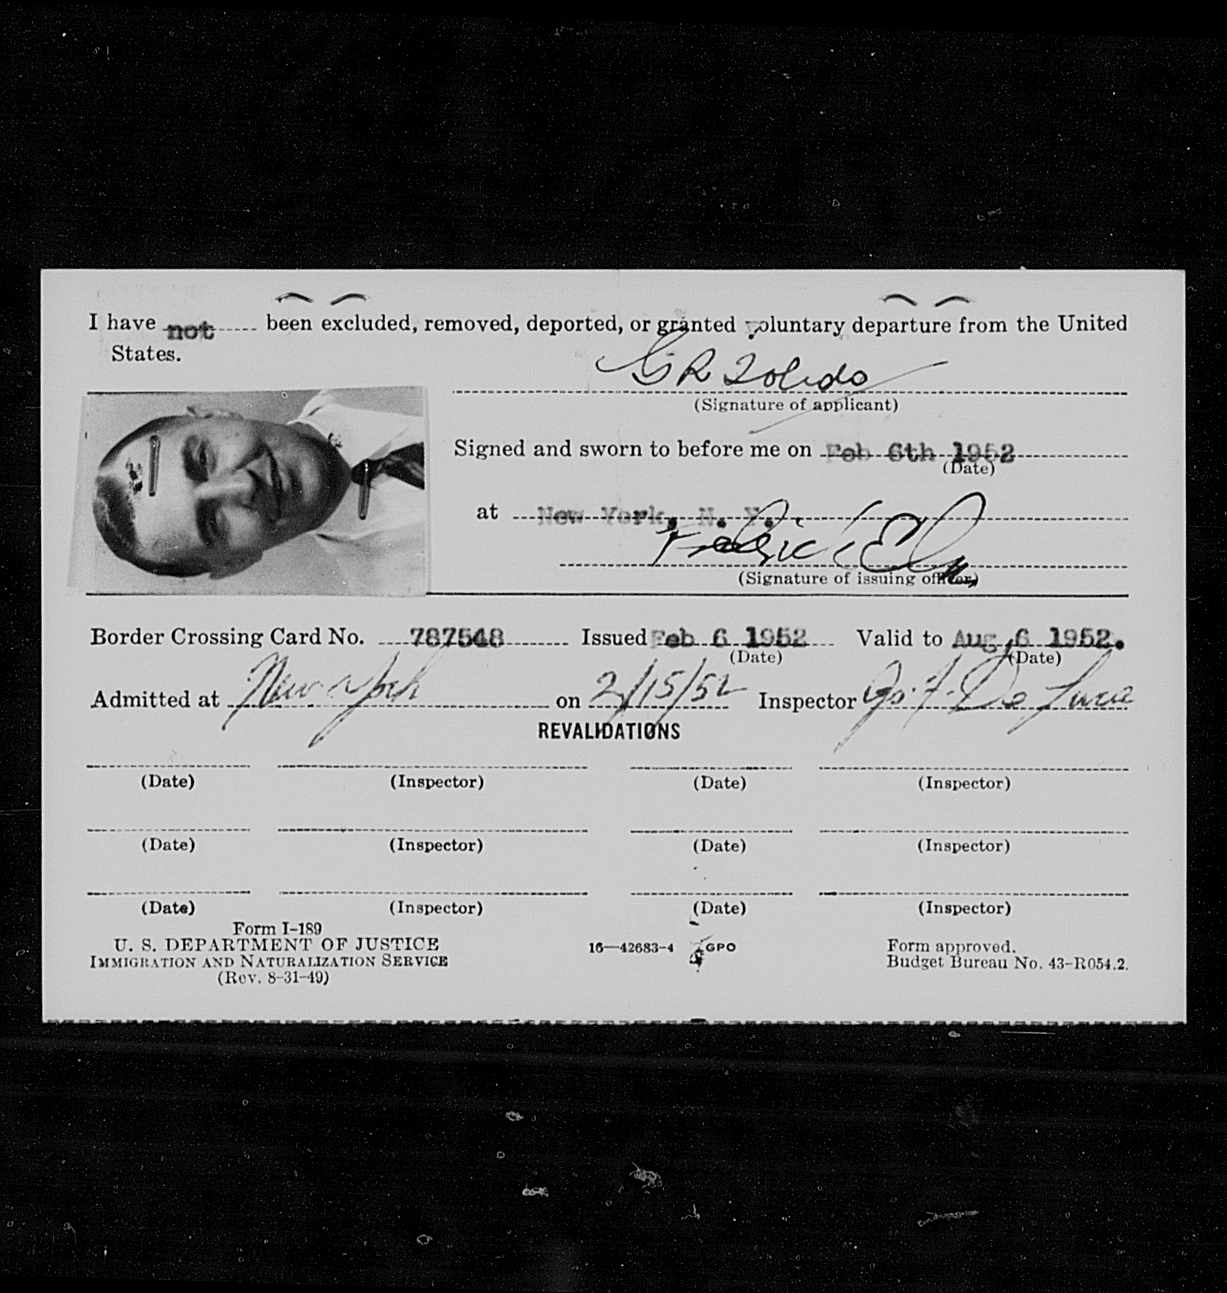 I have not been excluded, removed, deported, or granted voluntary departure from the United
States.
G R Toledo
(Signature of applicant)
Signed and sworn to before me on Feb 6th 1952
(Date)
at New York, N. Y.
(Signature of issuing officer)
Border Crossing Card No. 787548 Issued Feb 6 1952 Valid to Aug 6 1952.
(Date) (Date)
Admitted at New York on 2/15/52 Inspector De Luca
REVALIDATIONS
(Date) (Inspector) (Date) (Inspector)
(Date) (Inspector) (Date) (Inspector)
(Date) (Inspector) (Date) (Inspector)
Form I-189
U. S. DEPARTMENT OF JUSTICE 16—42683-4 GPO Form approved.
IMMIGRATION AND NATURALIZATION SERVICE Budget Bureau No. 43-R054.2.
(Rev. 8-31-49)